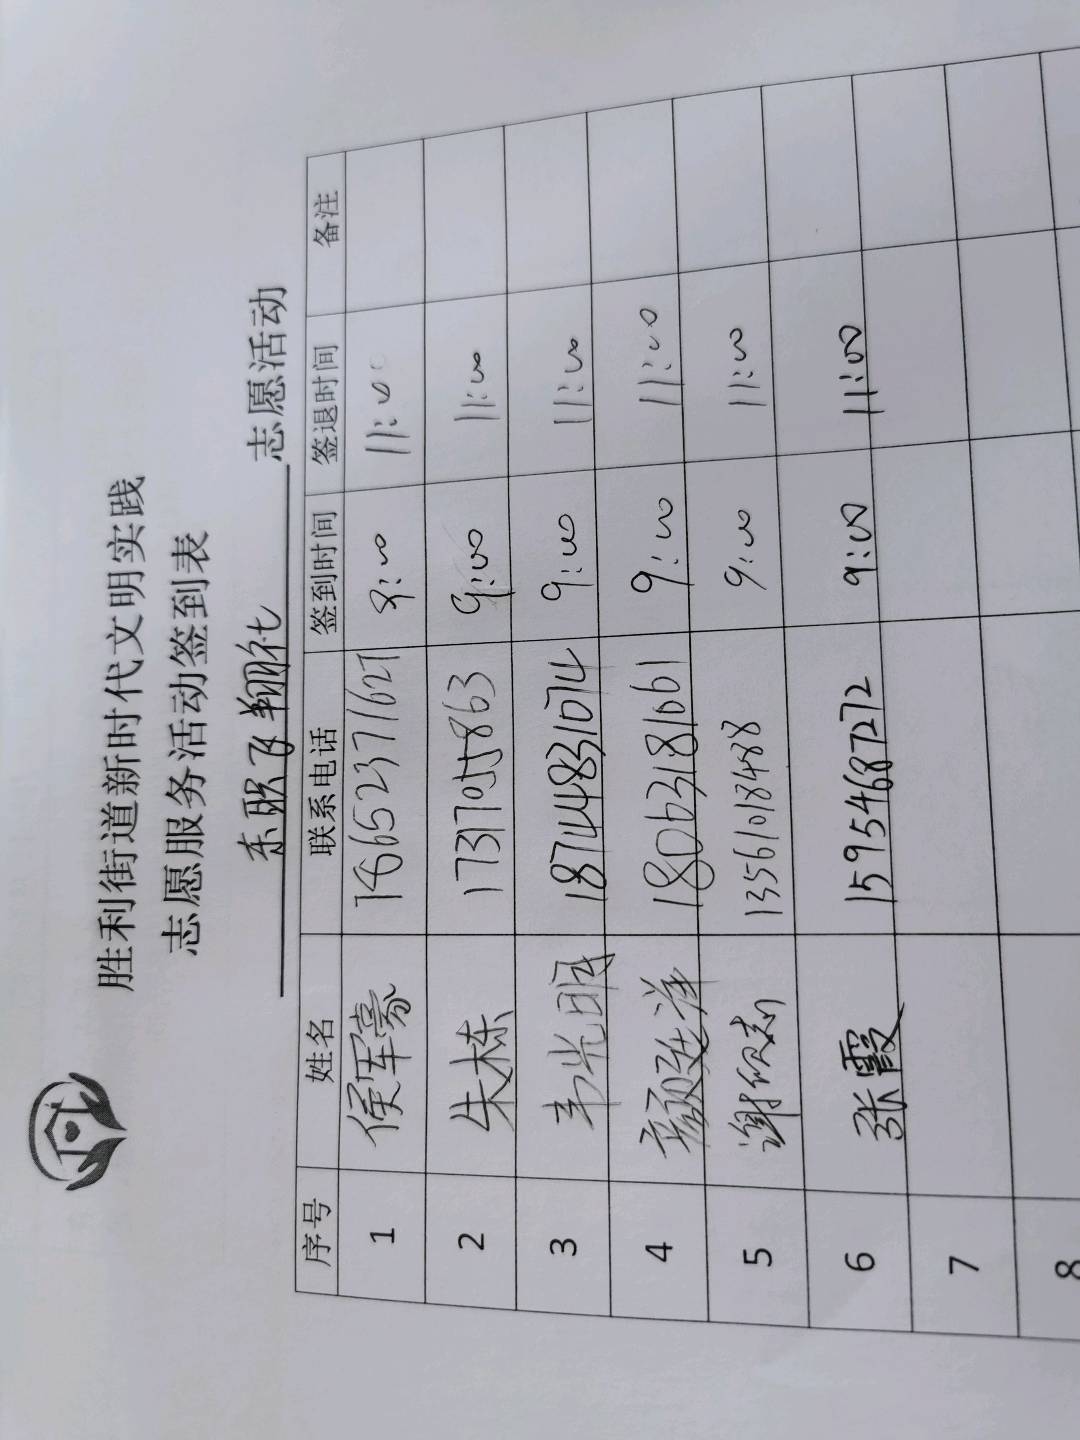 胜利街道新时代文明实践
志愿服务活动签到表
东联飞翔社 志愿活动
序号 姓名 联系电话 签到时间 签退时间 备注
1 侯军豪 18665237162 9:00 11:00
2 朱栋 17317055863 9:00 11:00
3 韦光明 18744831074 9:00 11:00
4 颜廷洋 18063181061 9:00 11:00
5 谢欣志 13561018488 9:00 11:00
6 张霞 15954687272 9:00 11:00
7
8